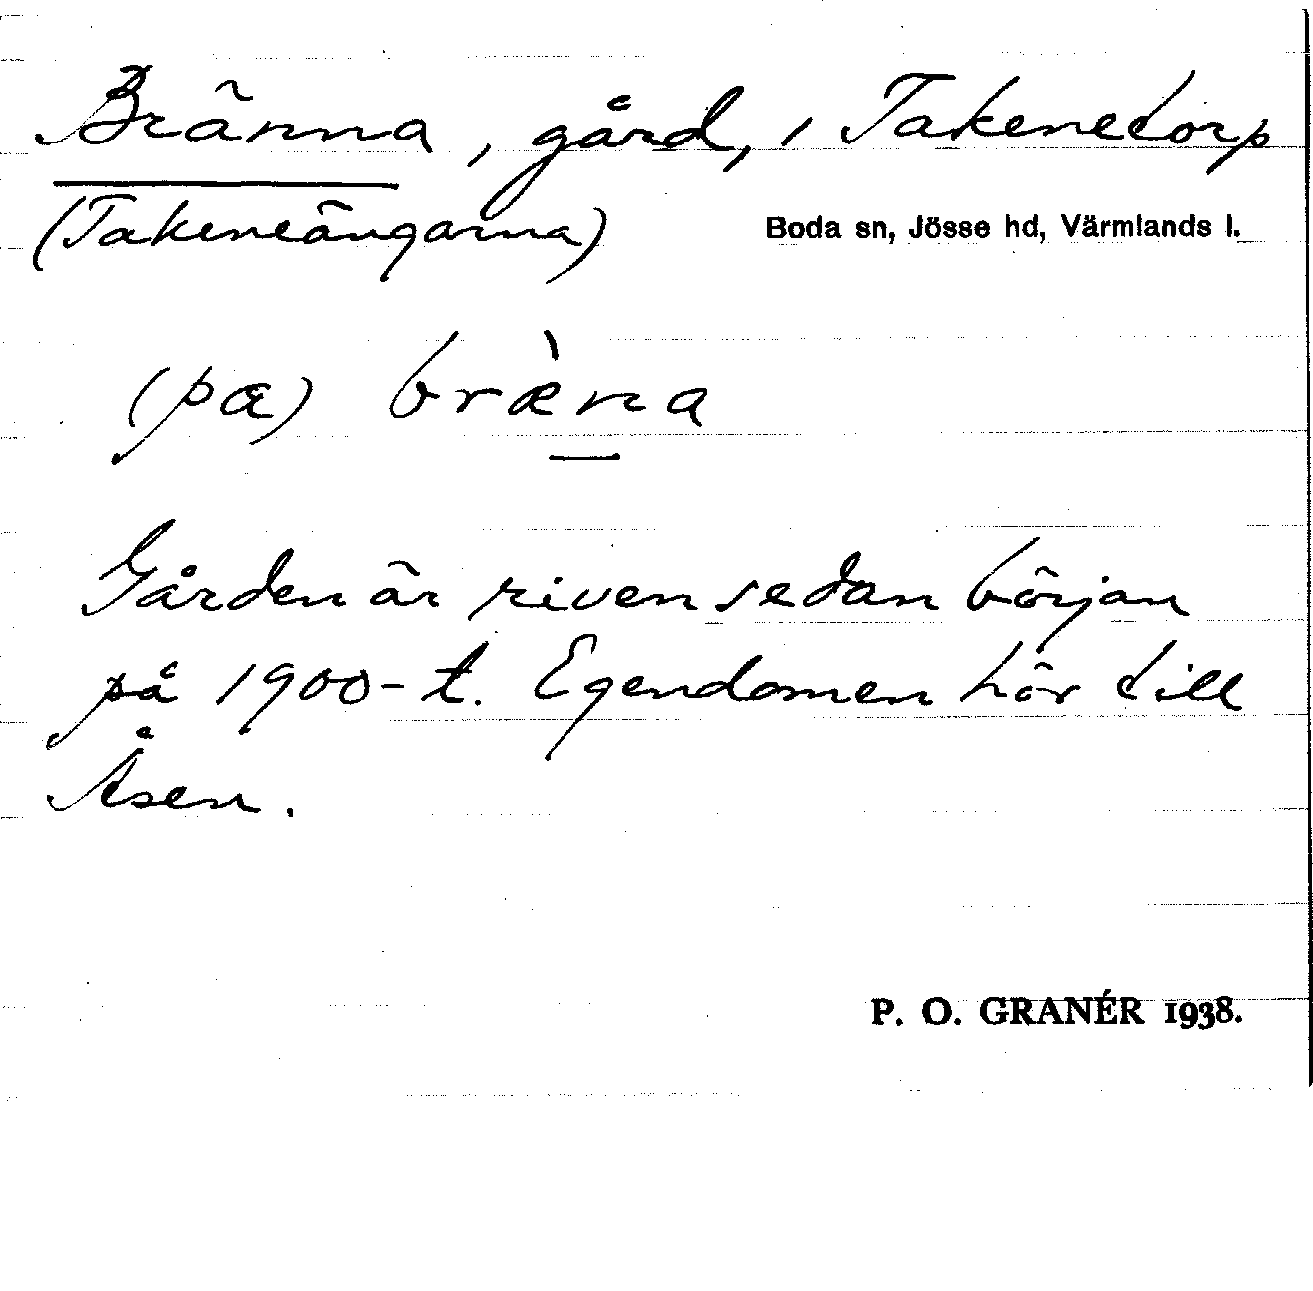 Bränna, gård, i Takenetorp
(Takeneängarna) Boda sn, Jösse hd, Värmlands l.
(pæ) bræ̀na
Gården är riven sedan början
på 1900-t. Egendomen hör till
Åsen.
P. O. GRANÉR 1938.